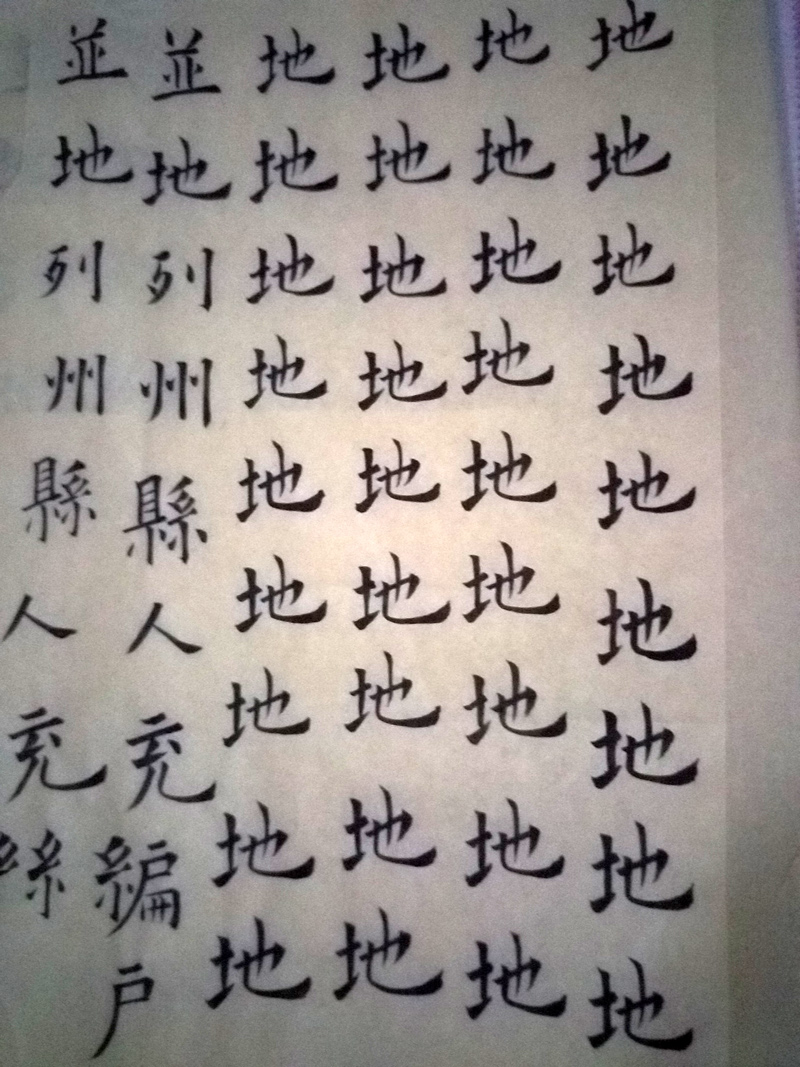 地地地地地地地地地
地地地地地地地地地
地地地地地地地地地
地地地地地地地地地
並地列州縣人充編戶
並地列州縣人充絲